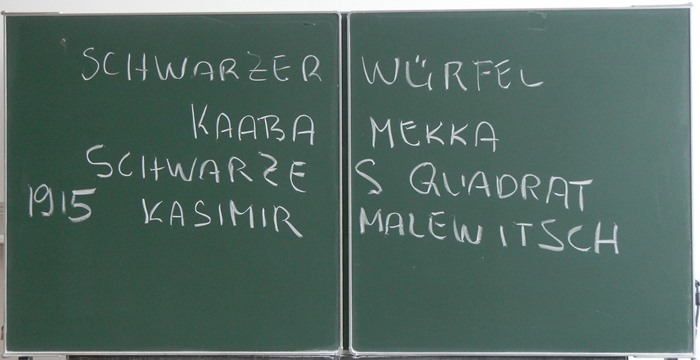 SCHWARZER WÜRFEL
KAABA MEKKA
SCHWARZES QUADRAT
1915 KASIMIR MALEWITSCH